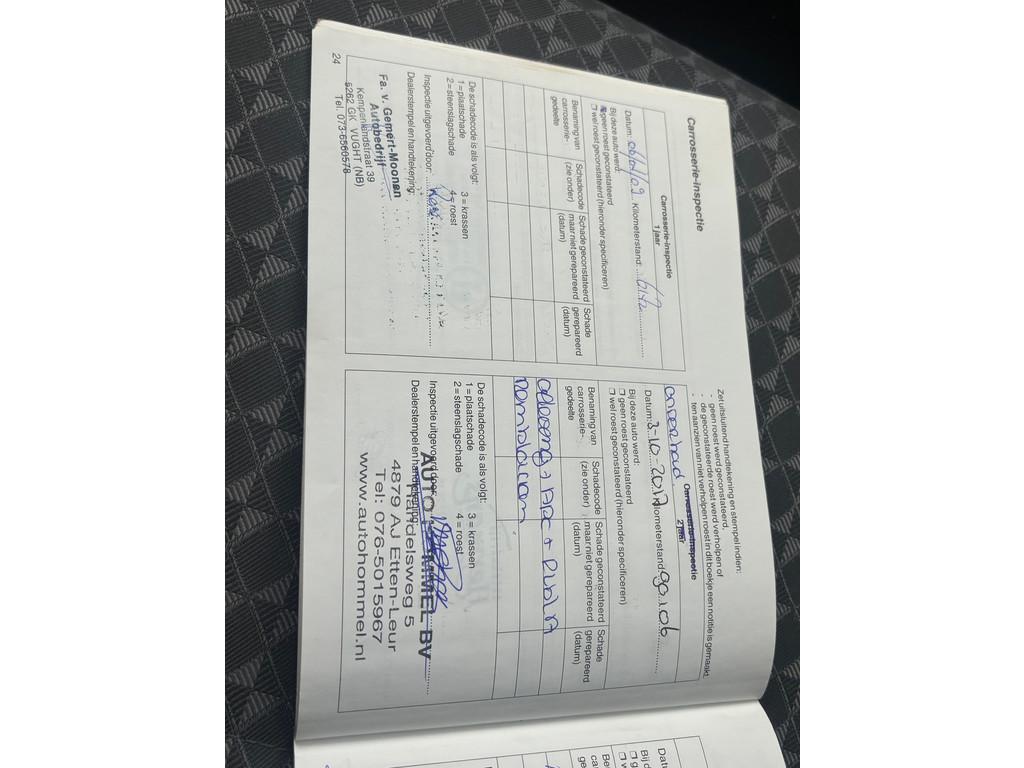 Carrosserie-inspectie
Carrosserie-inspectie
1 jaar
Datum: Kilometerstand:
Bij deze auto werd:
geen roest geconstateerd
wel roest geconstateerd (hieronder specificeren)
Benaming van carrosserie-gedeelte
Schadecode (zie onder)
Schade geconstateerd maar niet gerepareerd (datum)
Schade gerepareerd (datum)
De schadecode is als volgt:
1 = plaatschade 3 = krassen
2 = steenslagschade 4 = roest
Inspectie uitgevoerd door:
Dealerstempel en handtekening:
Fa. v. Gemert-Moonen
Autobedrijf
Kempenlandstraat 39
5262 GK VUGHT (NB)
Tel. 073-6560578
24
Zet uitsluitend handtekening en stempel indien:
- geen roest werd geconstateerd,
- de geconstateerde roest werd verholpen of
- ten aanzien van niet verholpen roest in dit boekje een notitie is gemaakt.
onderhoud
Carrosserie-inspectie
2 jaar
Datum: 3-10-2012 Kilometerstand: 90.106
Bij deze auto werd:
geen roest geconstateerd
wel roest geconstateerd (hieronder specificeren)
Benaming van carrosserie-gedeelte
Schadecode (zie onder)
Schade geconstateerd maar niet gerepareerd (datum)
Schade gerepareerd (datum)
De schadecode is als volgt:
1 = plaatschade 3 = krassen
2 = steenslagschade 4 = roest
Inspectie uitgevoerd door:
Dealerstempel en handtekening:
AUTO HOMMEL BV
Handelsweg 5
4879 AJ Etten-Leur
Tel: 076-5015967
www.autohommel.nl